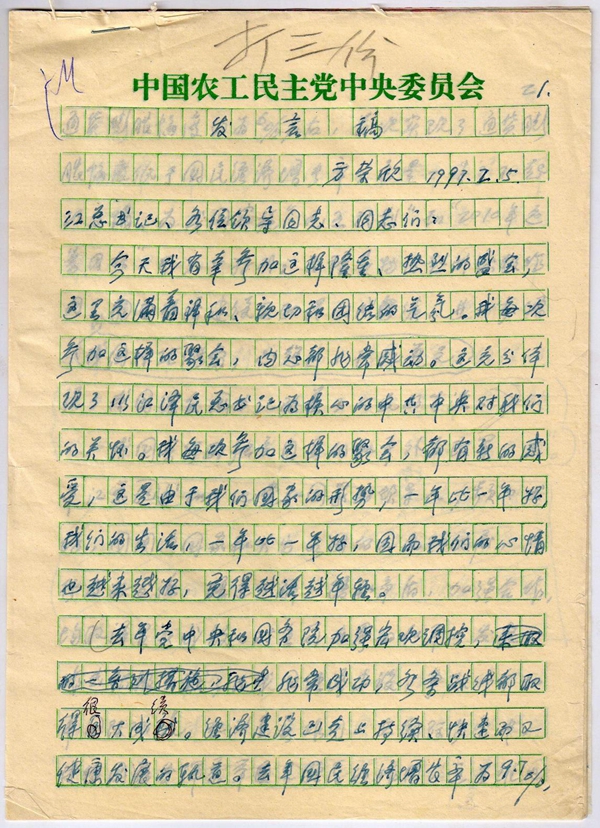 打三份
中国农工民主党中央委员会
21.
发言稿
方荣欣 1997.2.5.
江总书记、各位领导同志、同志们：
今天我有幸参加这样隆重、热烈的盛会，
这里充满着祥和、亲切和团结的气氛。我每次
参加这样的聚会，内心都非常感动。这充分体
现了以江泽民总书记为核心的中共中央对我们
的关怀。我每次参加这样的聚会，都有新的感
受，这是由于我们国家的形势，一年比一年好，
我们的生活，一年比一年好，因而我们的心情
也越来越好，觉得越活越年轻。
去年党中央和国务院加强宏观调控，采取
的一系列措施 非常成功，各条战线都取
得很大成绩。经济建设已走上持续、快速而又
健康发展的轨道。去年国民经济增长率为9.7%，